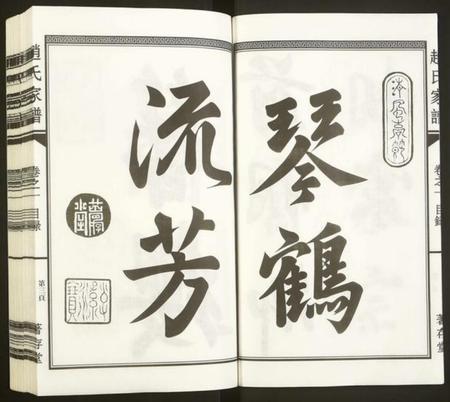 趙氏家譜
卷之一
目録
著存堂
琴鶴
流芳
趙氏家譜
卷之一
目録
第三頁
著存堂